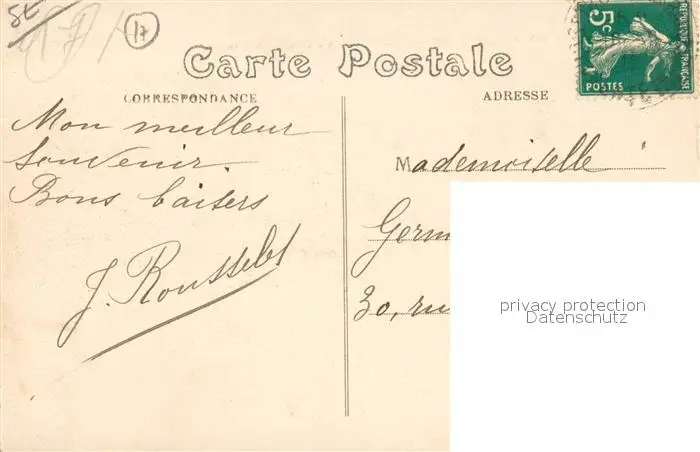 17
Carte Postale
CORRESPONDANCE
ADRESSE
5c
REPUBLIQUE FRANÇAISE
POSTES
Mon meilleur
souvenir.
Bons baisers
J. Rousselet
Mademoiselle
Germ
30, rue
privacy protection
Datenschutz